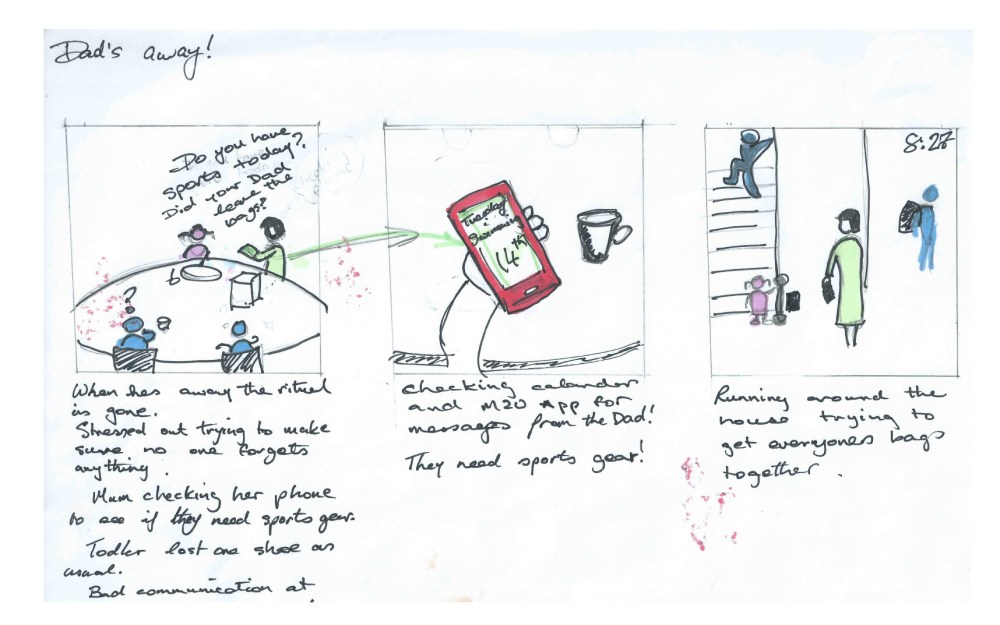 Dad's away!
Do you have
sports today?
Did your Dad
leave the
bags?
6
?
Tuesday
Swimming
14th
8:27
When hes away the ritual
is gone.
Stressed out trying to make
sure no one forgets
anything.
Mum checking her phone
to see if they need sports gear.
Todler lost one shoe as
usual.
Bad communication at
checking calander
and M2U App for
messages from the Dad!
They need sports gear!
Running around the
house trying to
get everyones bags
together.